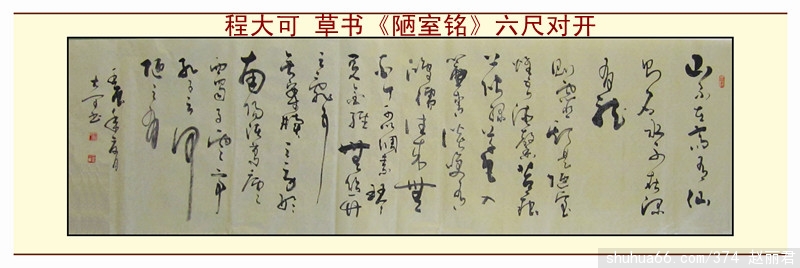 程大可 草书《陋室铭》六尺对开
山不在高有仙
则名水不在深
有龍
则灵斯是陋室
惟吾德馨苔痕
上阶绿草色入
帘青谈笑有
鸿儒往来無
白丁可以调素琴
阅金经無丝竹
之乱耳
无案牍之劳形
南阳诸葛庐
西蜀子云亭
孔子云何
陋之有
壬辰年夏月
大可书
shuhua66.com/374 赵丽君